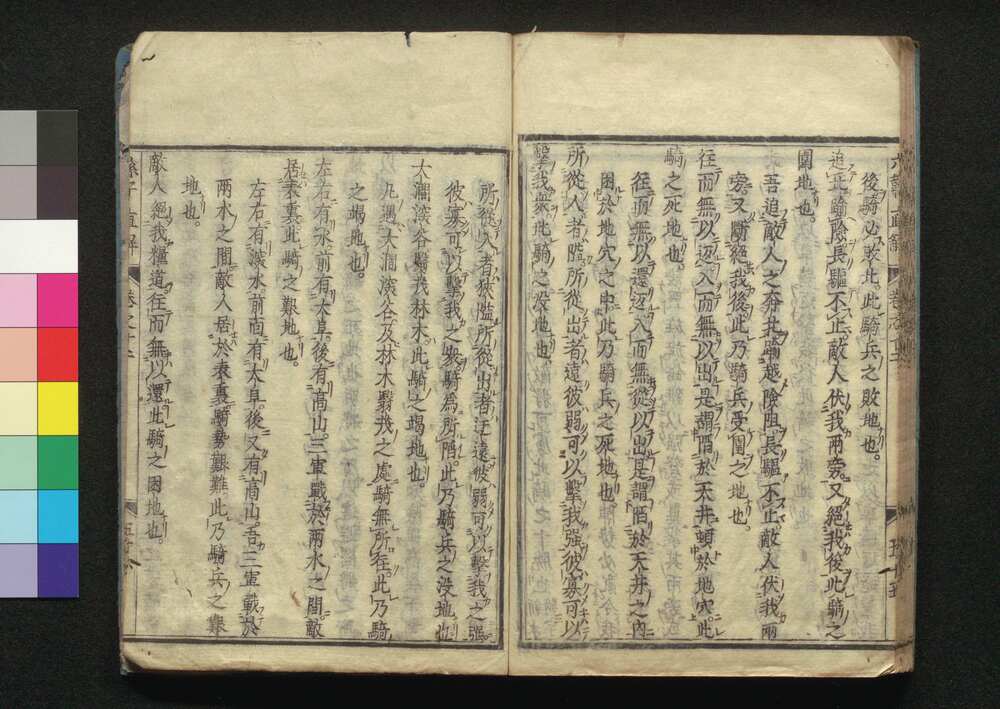 後騎必敗此騎兵之敗地也。
追北踰險長驅不止敵人伏我兩旁又絕我後此騎之
圍地也。
吾追敵人之奔北踰越險阻長驅不止敵人伏我兩
旁又斷絕我後此乃騎兵受圍之地也。
往而無以返入而無以出是謂陷於天井頓於地穴此
騎之死地也。
往而無以還返入而無從以出是謂陷於天井之內
困於地穴之中此乃騎兵之死地也
所從入者隘所從出者遠彼弱可以擊我強彼寡可以
擊我衆此騎之沒地也
所從入者狹隘所從出者迂遠彼弱可以擊我之強
彼寡可以擊我之衆騎爲所陷此乃騎兵之沒地也
大澗深谷翳茂林木此騎之竭地也
凡遇大澗深谷及林木翳茂之處騎無所往此乃騎
之竭地也。
左右有水前有大阜後有高山三軍戰於兩水之間敵
居表裏此騎之艱地也。
左右有深水前面有大阜後又有高山吾三軍戰於
兩水之間敵人居於表裏騎勢艱難此乃騎兵之艱
地也。
敵人絕我糧道往而無以還此騎之困地也。